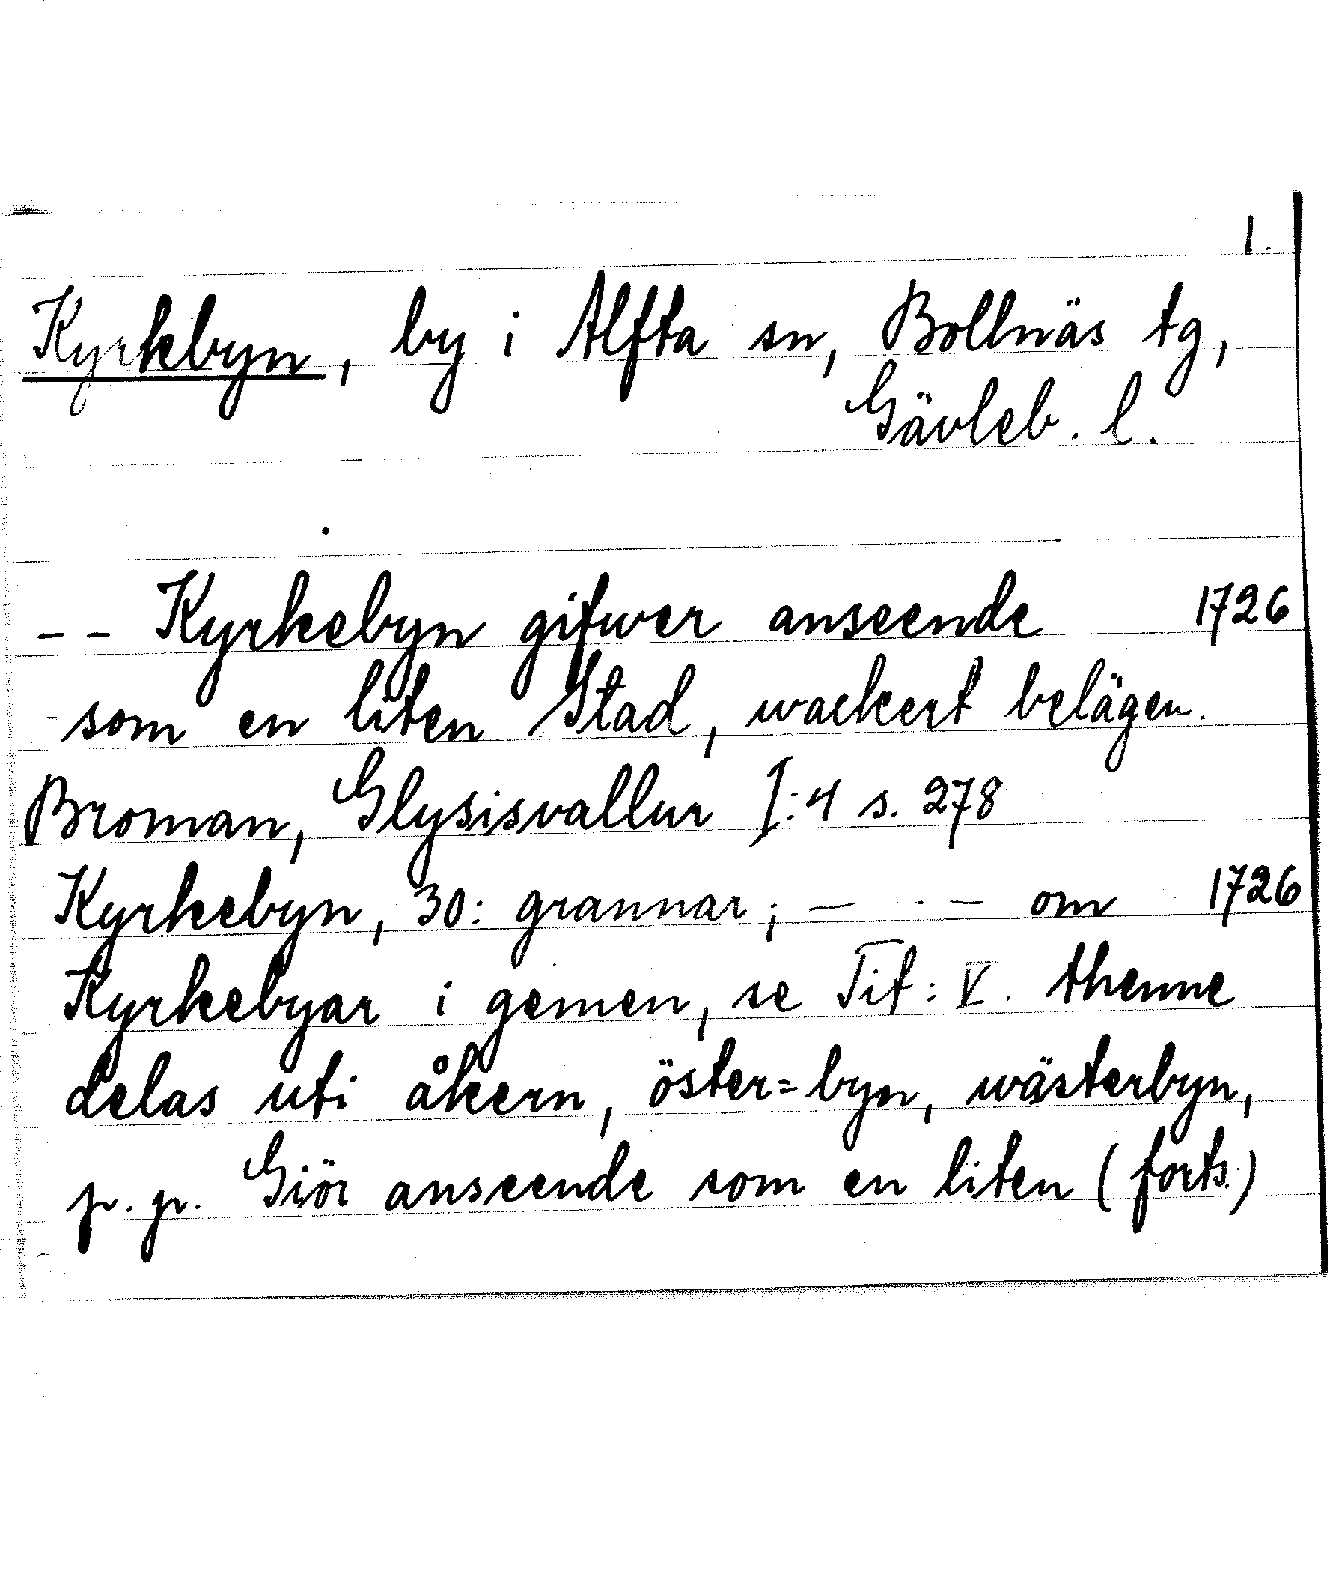 1.
Kyrkbyn, by i Alfta sn, Bollnäs tg,
Gävleb. l.
-- Kyrkebyn gifwer anseende 1726
som en liten Stad, wackert belägen.
Broman, Glysisvallur I:4 s. 278
Kyrkebyn, 30: grannar; — · — om 1726
Kyrkebyar i gemen, se Tit: V. thenne
delas uti åkern, öster=byn, wästerbyn,
p. p. Giör anseende som en liten (forts.)